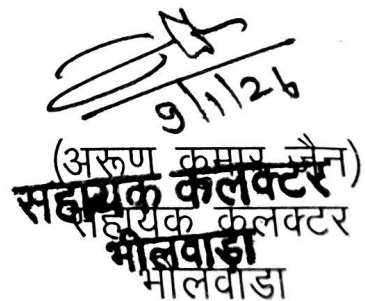 9/1/26
(अरूण कुमार जैन)
सहायक कलक्टर
सहायक कलक्टर
भीलवाडा
भीलवाडा